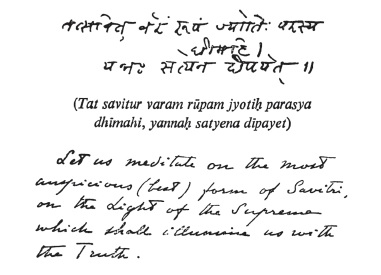 तत्सवितुर् वरं रूपं ज्योतिः परस्य
धीमहि ।
यन्नः सत्येन दीपयेत् ॥
(Tat savitur varam rūpam jyotiḥ parasya
dhīmahi, yannaḥ satyena dīpayet)
Let us meditate on the most
auspicious (best) form of Savitri,
on the Light of the Supreme
which shall illumine us with
the Truth.